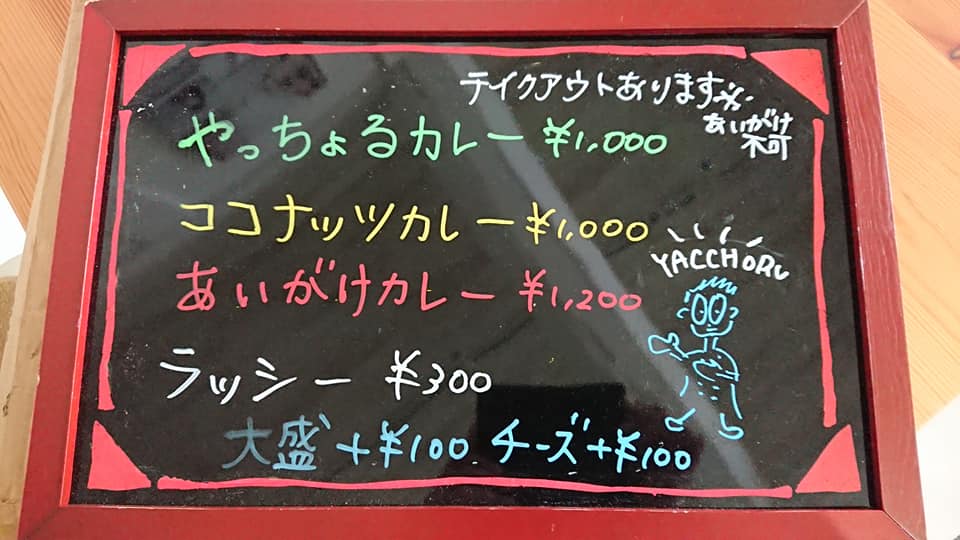 テイクアウトあります※
あいがけ
不可
やっちょるカレー ¥1,000
ココナッツカレー ¥1,000
あいがけカレー ¥1,200
YACCHORU
ラッシー ¥300
大盛+¥100 チーズ+¥100